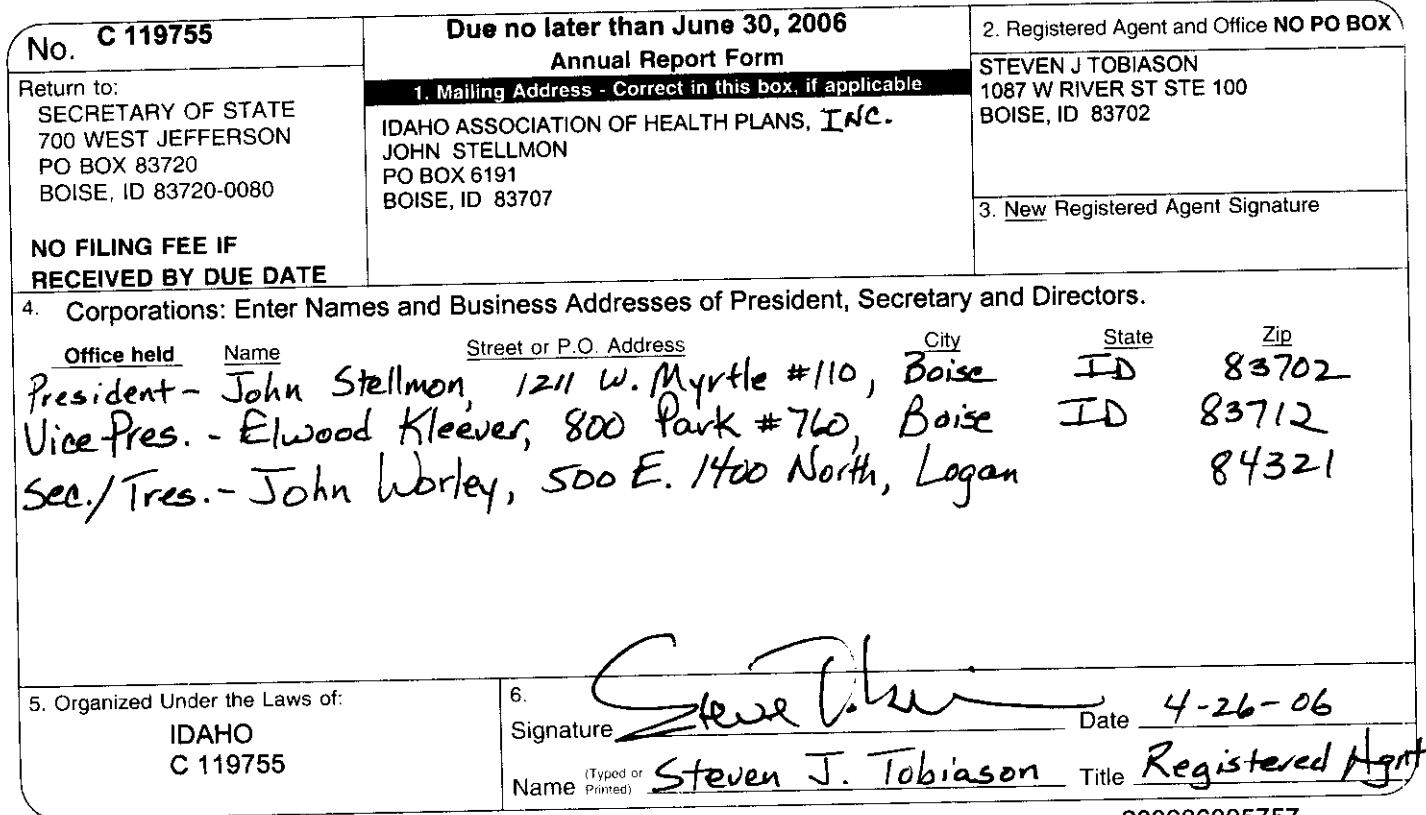 No. C 119755
Return to:
SECRETARY OF STATE
700 WEST JEFFERSON
PO BOX 83720
BOISE, ID 83720-0080
NO FILING FEE IF
RECEIVED BY DUE DATE
Due no later than June 30, 2006
Annual Report Form
1. Mailing Address - Correct in this box, if applicable
IDAHO ASSOCIATION OF HEALTH PLANS, INC.
JOHN STELLMON
PO BOX 6191
BOISE, ID 83707
2. Registered Agent and Office NO PO BOX
STEVEN J TOBIASON
1087 W RIVER ST STE 100
BOISE, ID 83702
3. New Registered Agent Signature
4. Corporations: Enter Names and Business Addresses of President, Secretary and Directors.
Office held Name Street or P.O. Address City State Zip
President - John Stellmon, 1211 W. Myrtle #110, Boise ID 83702
Vice Pres. - Elwood Kleever, 800 Park #760, Boise ID 83712
Sec./Tres. - John Worley, 500 E. 1400 North, Logan 84321
5. Organized Under the Laws of:
IDAHO
C 119755
6.
Signature Steve Date 4-26-06
Name (Typed or Printed) Steven J. Tobiason Title Registered Agnt